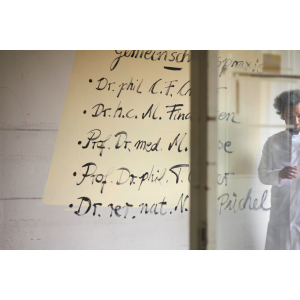 Gemeinsch
• Dr. phil K. F.
• Dr. h.c. M. Fina en
• Prof. Dr. med. M. e
• Prof. Dr. phil. T. er
• Dr. rer. nat. N. Püchel